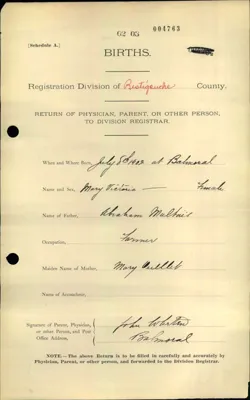 004763
02 05
[Schedule A.]
BIRTHS.
Registration Division of Restigouche County.
RETURN OF PHYSICIAN, PARENT, OR OTHER PERSON,
TO DIVISION REGISTRAR.
When and Where Born, July 8th at Balmoral
Name and Sex, Mary Victoria — Female
Name of Father, Abraham
Occupation, Farmer
Maiden Name of Mother, Mary Ouellet
Name of Accoucheur,
Signature of Parent, Physician,
or other Person, and Post
Office Address,
John
Balmoral
NOTE.—The above Return is to be filled in carefully and accurately by
Physician, Parent, or other person, and forwarded to the Division Registrar.